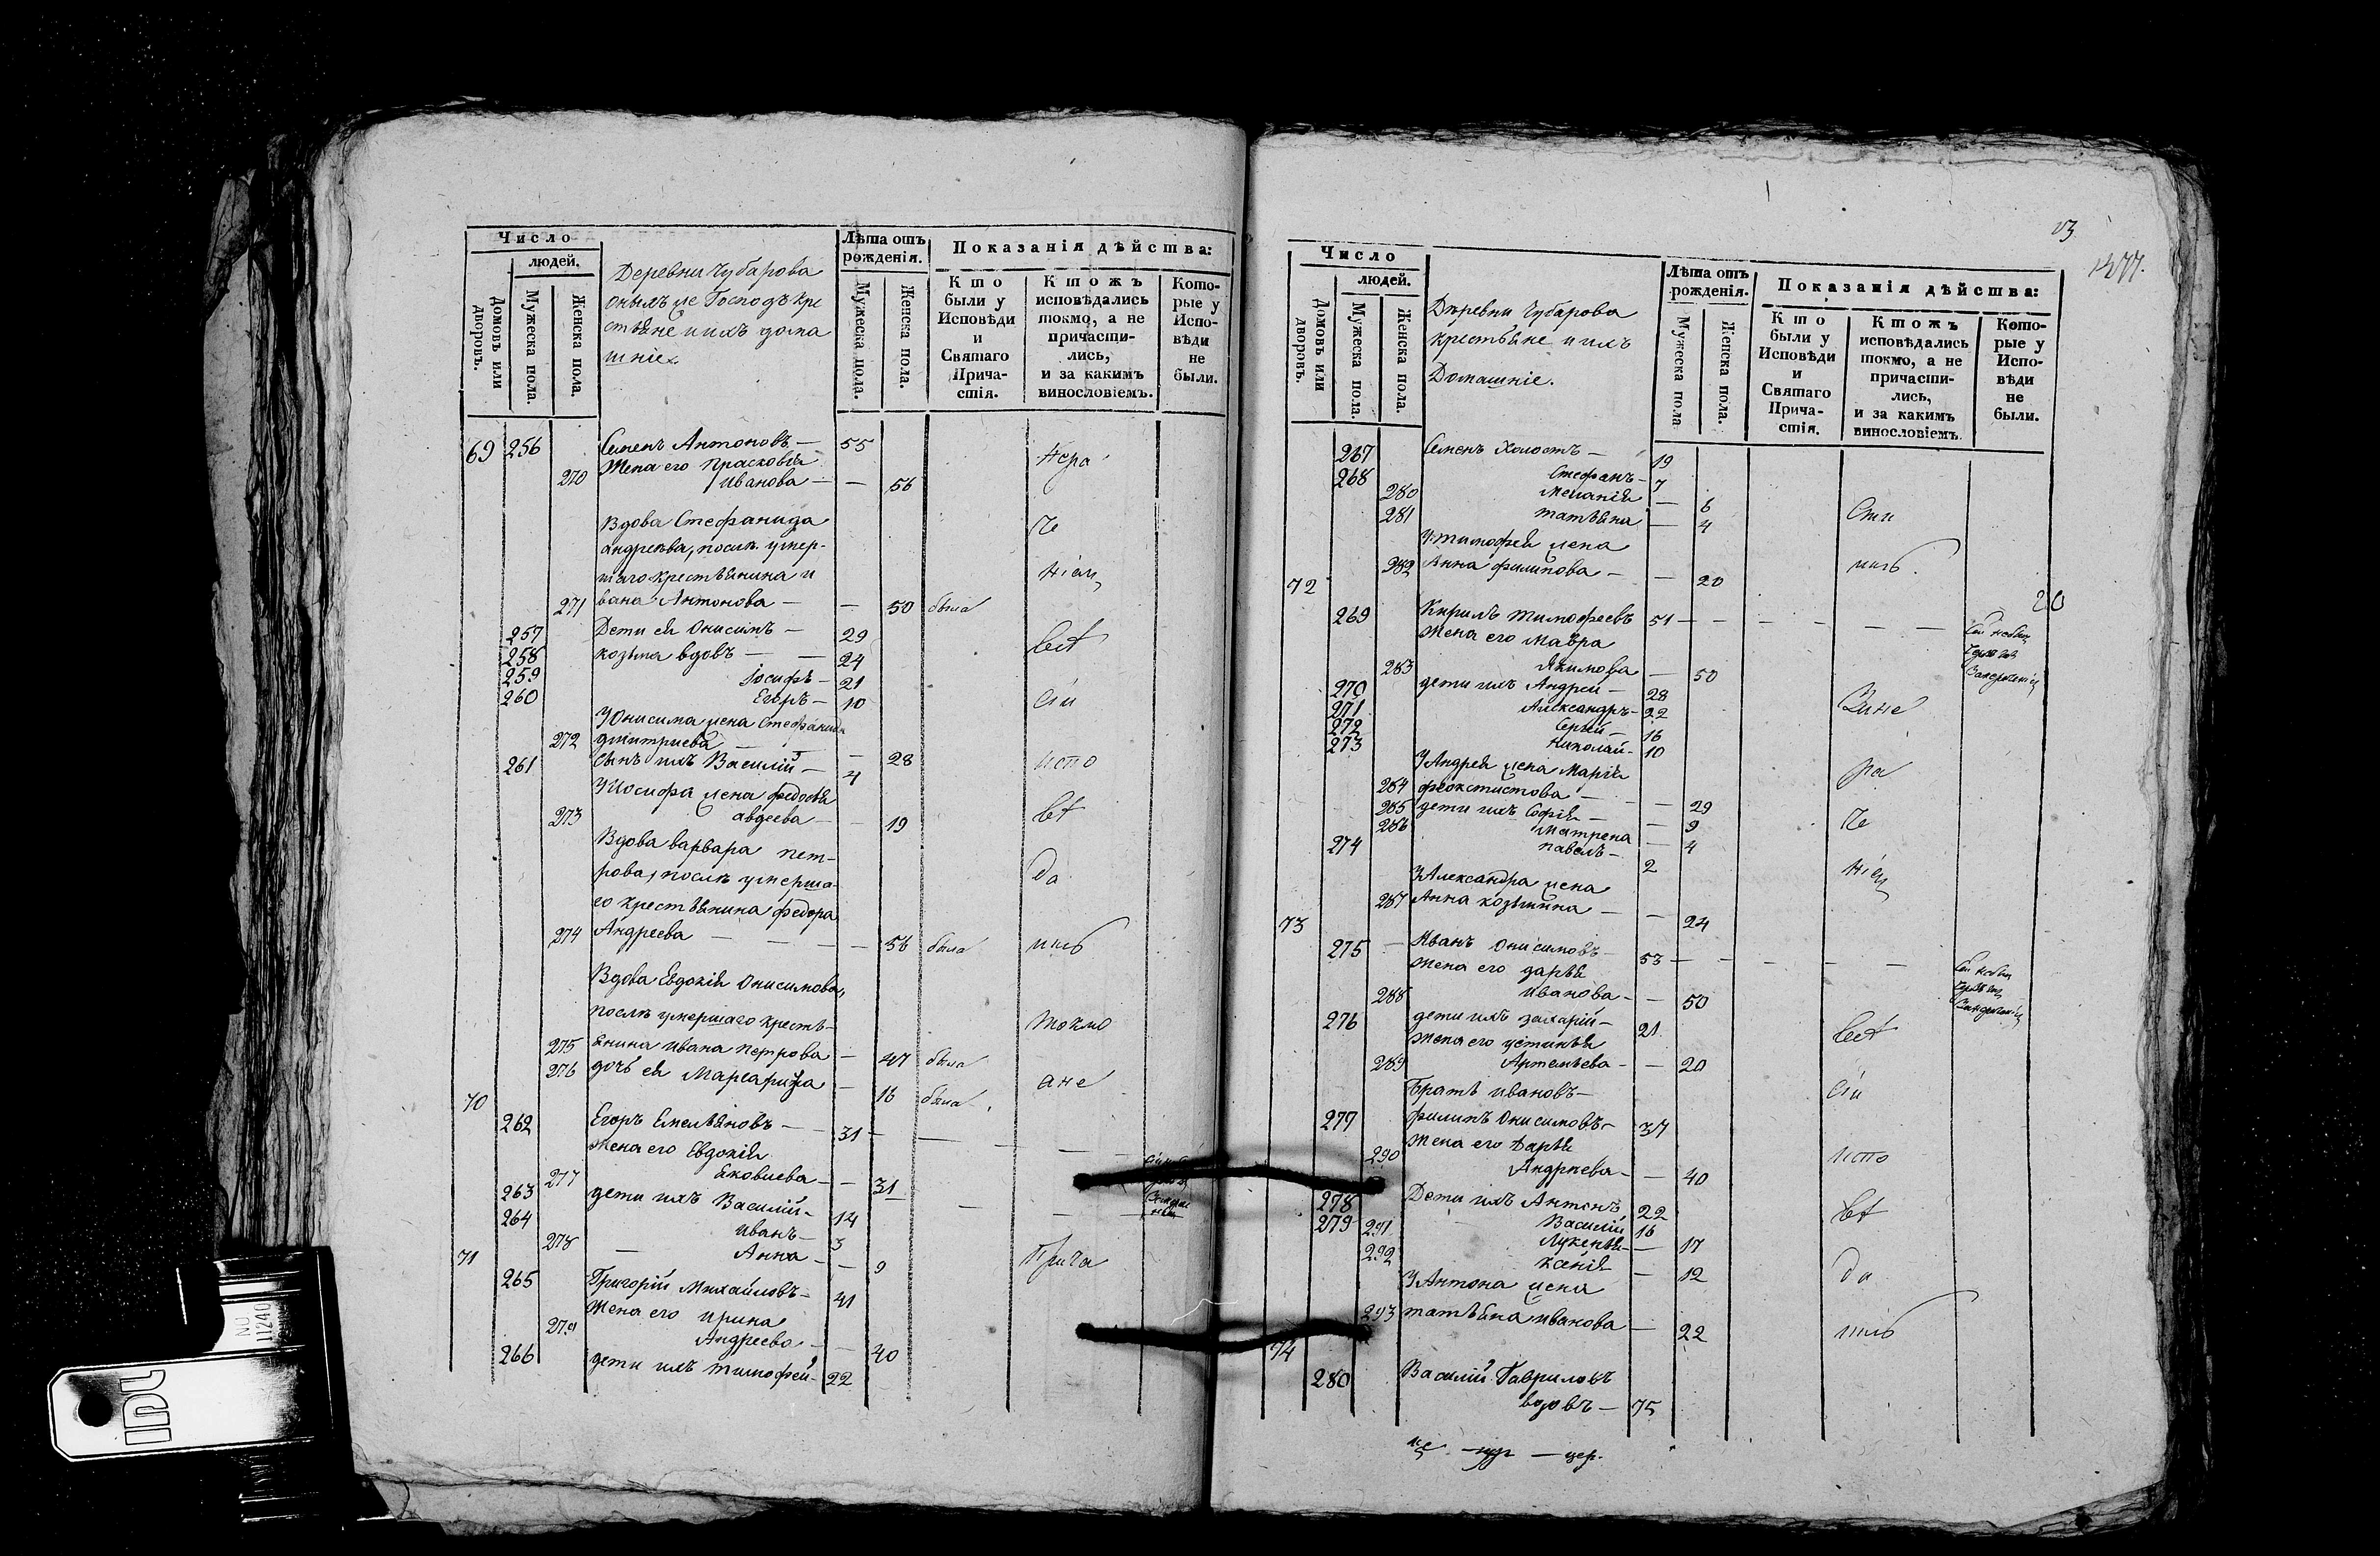 Число
людей.
Домовъ или дворовъ.
Мужеска пола.
Женска пола.
Деревни Чубарова
оныхъ же Господъ кре
стьяне и ихъ дома
шніе
Лѣта отъ рожденія.
Мужеска пола.
Женска пола.
Показанія дѣйства:
Кто были у Исповѣди и Святаго Причастія.
Ктожъ исповѣдались токмо, а не причастились, и за какимъ винословіемъ.
Которые у Исповѣди не были.
69 256 Семенъ Антоновъ — 55
Жена его Прасковья
270 Иванова — — 56
Нера
Вдова Стефанида
андреева, послѣ умер-
шаго крестьянина и
271 вана Антонова — — 50 была
Че
ніем
257 Дети ея Онисимъ — 29
258 козьма вдовъ — — 24
259 Іосифъ — 21
260 Егоръ — 10
всѣ
сіи
У Онисима жена Стефанида
272 дмитриева — — 28
261 сынъ ихъ Василій — 4
испо
У Иосифа жена федосья
273 авдеева — — 19
вѣ
Вдова варвара пет-
рова, послѣ умерша-
го крестьянина федора
274 Андреева — — — — 56 была
да
лись
Вдова Евдокія Онисимова,
послѣ умершаго кресть-
275 янина ивана петрова — 47 была
276 дочь ея Маргарита — 16 была
токмо
а не
70
262 Егоръ Емельяновъ — 31 — — —
Жена его Евдокія
277 Яковлева — — 31
263 дети ихъ Василій — 14
264 иванъ — 3
278 — Анна — — 9
71
Прича
265 Григорій Михайловъ — 41
Жена его ирина
279 Андреева — — 40
266 дети ихъ тимофей — 22
1277.
Число
людей.
Домовъ или дворовъ.
Мужеска пола.
Женска пола.
Деревни Чубарова
крестьяне и ихъ
Домашніе.
Лѣта отъ рожденія.
Мужеска пола
Женска пола.
Показанія дѣйства:
Кто были у Исповѣди и Святаго Причастія.
Ктожъ исповѣдались токмо, а не причастились, и за какимъ винословіемъ.
Которые у Исповѣди не были.
267 Семенъ холостъ — 19
268 Стефанъ — 7
280 меланія — 6
281 татьяна — 4
Сти
У тимофея жена
282 Анна филипова — — 20
лись
72
269 Кирилъ тимофеевъ 51 — — — — — —
Жена его мавра
283 Якимова — 50
270 дети ихъ Андрей — 28
271 Александръ — 22
272 Сергей — 16
273 николай — 10
Зане
У Андрея жена Марія
284 феоктистова — — — 29
285 дети ихъ Софія — — 9
286 матрена — 4
274 павелъ — 2
ра
Че
У Александра жена
287 Анна козьмина — — 24
ніем
73
275 — Иванъ онисимовъ — 53 — — — — —
Жена его дарья
288 иванова — — 50
276 дети ихъ захарій — 21
Жена его устинья
289 Артемьева — — 20
всѣ
Братъ ивановъ —
277 филипъ Онисимовъ — 37
Жена его Дарья
290 Андреева — — 40
сіи
испо
278 Дети ихъ Антонъ 22
279 Василій 16
291 Лукерья — — 17
292 ксенія — 12
вѣ
У Антона жена
293 татьяна иванова — 22
да
лись
74
280 Василій Гавриловъ
вдовъ — 75